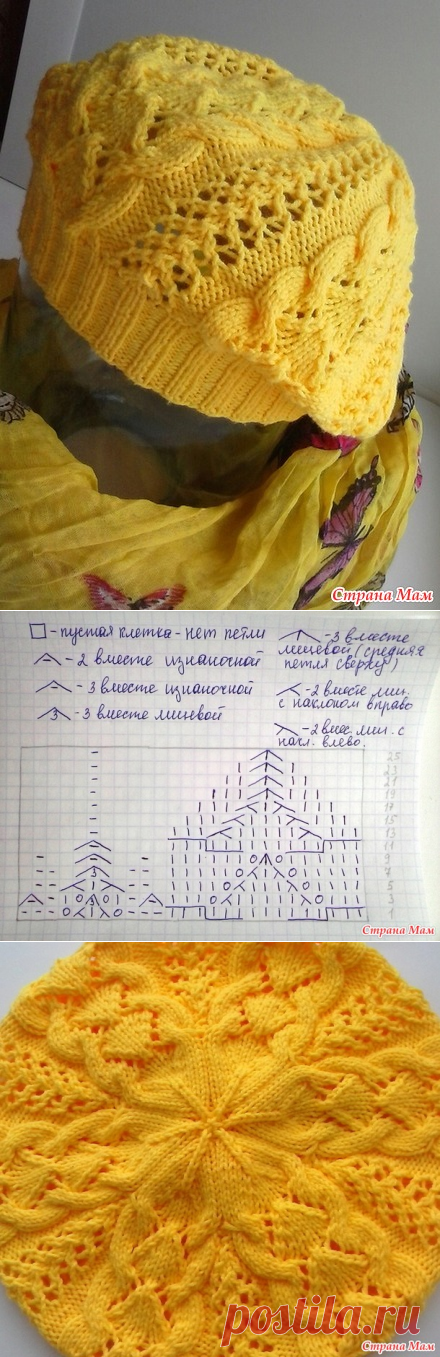 Страна Мам
□ - пустая клетка - нет петли
- 2 вместе изнаночной
- 3 вместе изнаночной
3 - 3 вместе лицевой
- 3 вместе
лицевой (средняя
петля сверху)
- 2 вместе лиц.
с наклоном вправо
- 2 вмес. лиц. с
накл. влево.
25
23
21
19
17
15
13
11
9
7
5
3
1
Страна Мам
postila.ru
Страна Мам